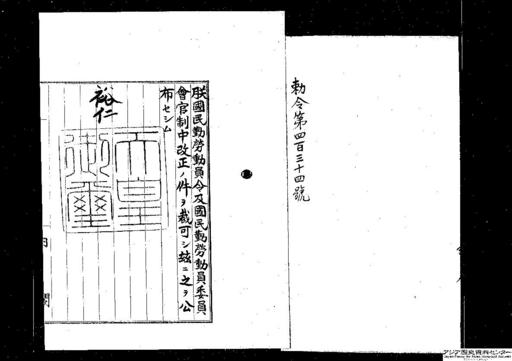 勅令第四百三十四號
朕國民勤勞動員令及國民勤勞動員委員
會官制中改正ノ件ヲ裁可シ玆ニ之ヲ公
布セシム
裕仁
天皇
御璽
内閣
アジア歴史資料センター